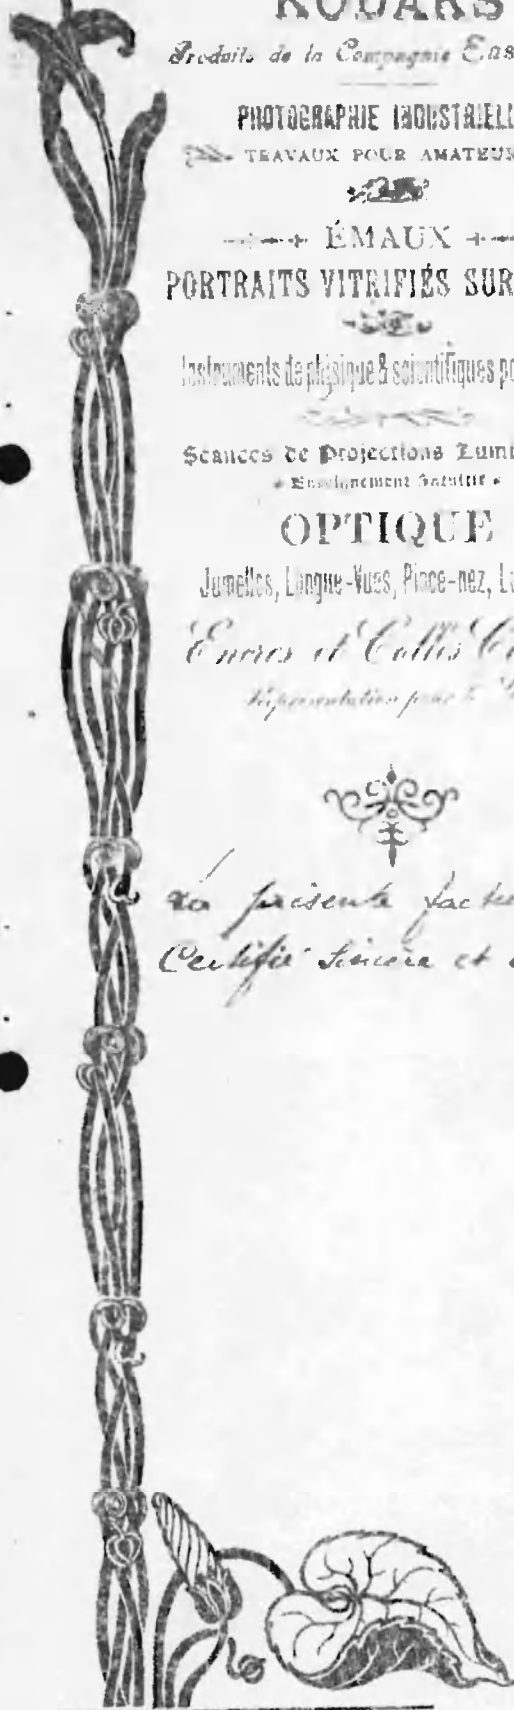 KODAKS
Produits de la Compagnie Eas
PHOTOGRAPHIE INDUSTRIELL
TRAVAUX POUR AMATEUR
ÉMAUX
PORTRAITS VITRIFIÉS SUR
Instruments de physique & scientifiques po
Séances de Projections Lumi
Enseignement Gratuit
OPTIQUE
Jumelles, Longue-Vues, Pince-nez, Lu
Encres et Colles
Représentation pour
La présente factu
Certifié Sincère et